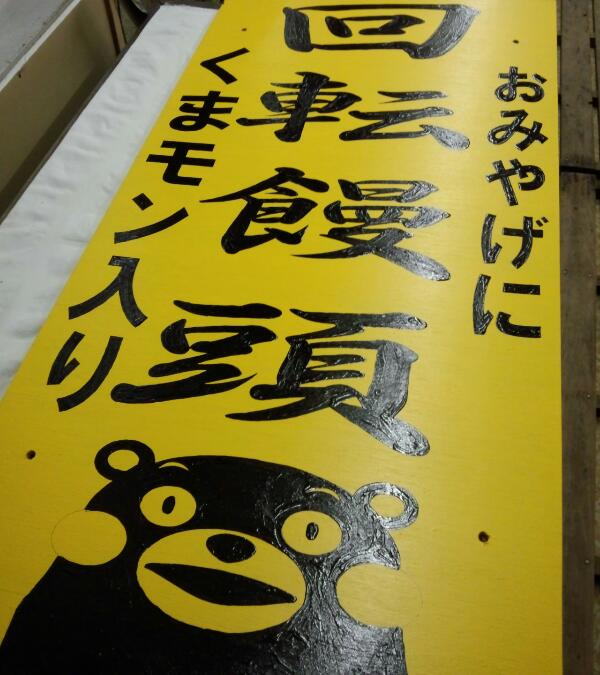 おみやげに
回転饅頭
くまモン入り